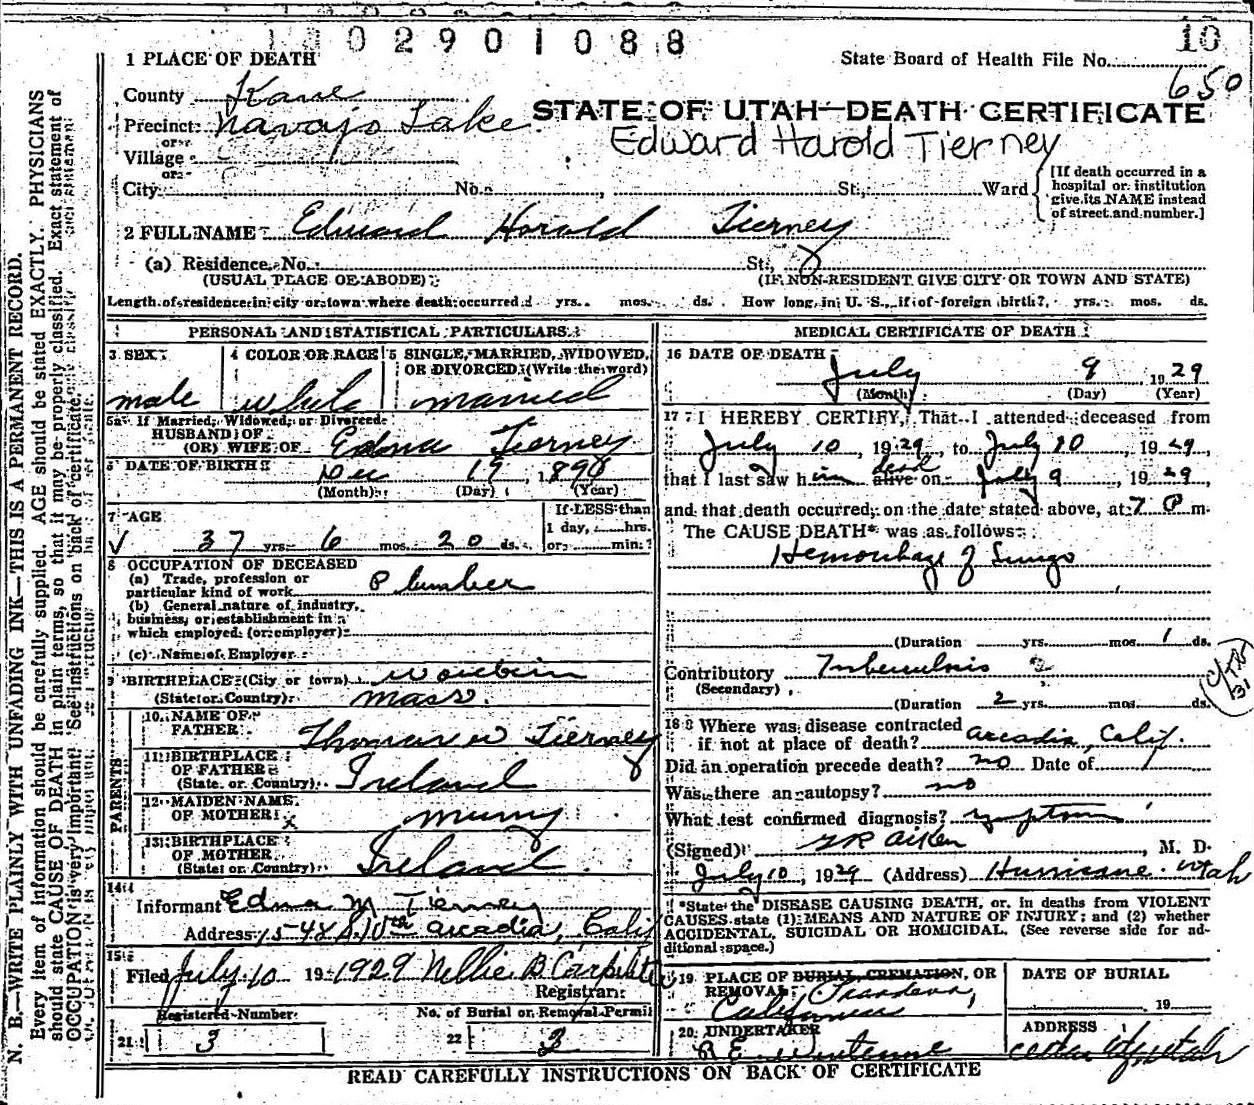 0 2 9 0 1 0 8 8
10
1 PLACE OF DEATH
State Board of Health File No.
650
County Kane
STATE OF UTAH—DEATH CERTIFICATE
Precinct Navajo Lake
Edward Harold Tierney
or
Village
or
City No. , St., Ward
[If death occurred in a
hospital or institution
give its NAME instead
of street and number.]
2 FULL NAME Edward Harold Tierney
(a) Residence, No. St.,
(USUAL PLACE OF ABODE) (IF NON-RESIDENT GIVE CITY OR TOWN AND STATE)
Length of residence in city or town where death occurred yrs. mos. ds. How long in U. S., if of foreign birth? yrs. mos. ds.
PERSONAL AND STATISTICAL PARTICULARS
3 SEX
male
4 COLOR OR RACE
white
5 SINGLE, MARRIED, WIDOWED,
OR DIVORCED, (Write the word)
married
5a If Married, Widowed, or Divorced
HUSBAND OF
(OR) WIFE OF Edna Tierney
6 DATE OF BIRTH Dec 19, 1890
(Month) (Day) (Year)
7 AGE
If LESS than
1 day, hrs.
37 yrs. 6 mos. 20 ds. or min.?
8 OCCUPATION OF DECEASED
(a) Trade, profession or
particular kind of work Plumber
(b) General nature of industry,
business, or establishment in
which employed (or employer)
(c) Name of Employer
9 BIRTHPLACE (City or town)
(State or Country) Mass.
PARENTS
10 NAME OF
FATHER Thomas W Tierney
11 BIRTHPLACE
OF FATHER
(State or Country) Ireland
12 MAIDEN NAME
OF MOTHER
13 BIRTHPLACE
OF MOTHER
(State or Country) Ireland
14
Informant Edna M Tierney
Address 1548 S. 10th Arcadia, Calif
15
Filed July 10 19 1929 Nellie B Carpenter
Registrar
Registered Number No. of Burial or Removal Permit
21 3 22 3
MEDICAL CERTIFICATE OF DEATH
16 DATE OF DEATH
July 9, 1929
(Month) (Day) (Year)
17 I HEREBY CERTIFY, That I attended deceased from
July 10, 1929, to July 10, 1929,
dead
that I last saw him alive on July 9, 1929,
and that death occurred, on the date stated above, at 7 P m.
The CAUSE DEATH* was as follows:
Hemorrhage of Lungs
(Duration yrs. mos. 1 ds.
Contributory Tuberculosis
(Secondary)
(Duration 2 yrs. mos. ds.
31
18 Where was disease contracted
if not at place of death? Arcadia, Calif.
Did an operation precede death? no Date of
Was there an autopsy? no
What test confirmed diagnosis? symptoms
(Signed) Aiken, M. D.
July 10, 1929 (Address) Hurricane Utah
*State the DISEASE CAUSING DEATH, or, in deaths from VIOLENT
CAUSES state (1) MEANS AND NATURE OF INJURY; and (2) whether
ACCIDENTAL, SUICIDAL OR HOMICIDAL. (See reverse side for ad-
ditional space.)
19 PLACE OF BURIAL, CREMATION, OR
REMOVAL Pasadena,
California
DATE OF BURIAL
19
20 UNDERTAKER
ADDRESS
Cedar City Utah
READ CAREFULLY INSTRUCTIONS ON BACK OF CERTIFICATE
N. B.—WRITE PLAINLY WITH UNFADING INK—THIS IS A PERMANENT RECORD.
Every item of information should be carefully supplied. AGE should be stated EXACTLY. PHYSICIANS
should state CAUSE OF DEATH in plain terms, so that it may be properly classified. Exact statement of
OCCUPATION is very important. See instructions on back of certificate.